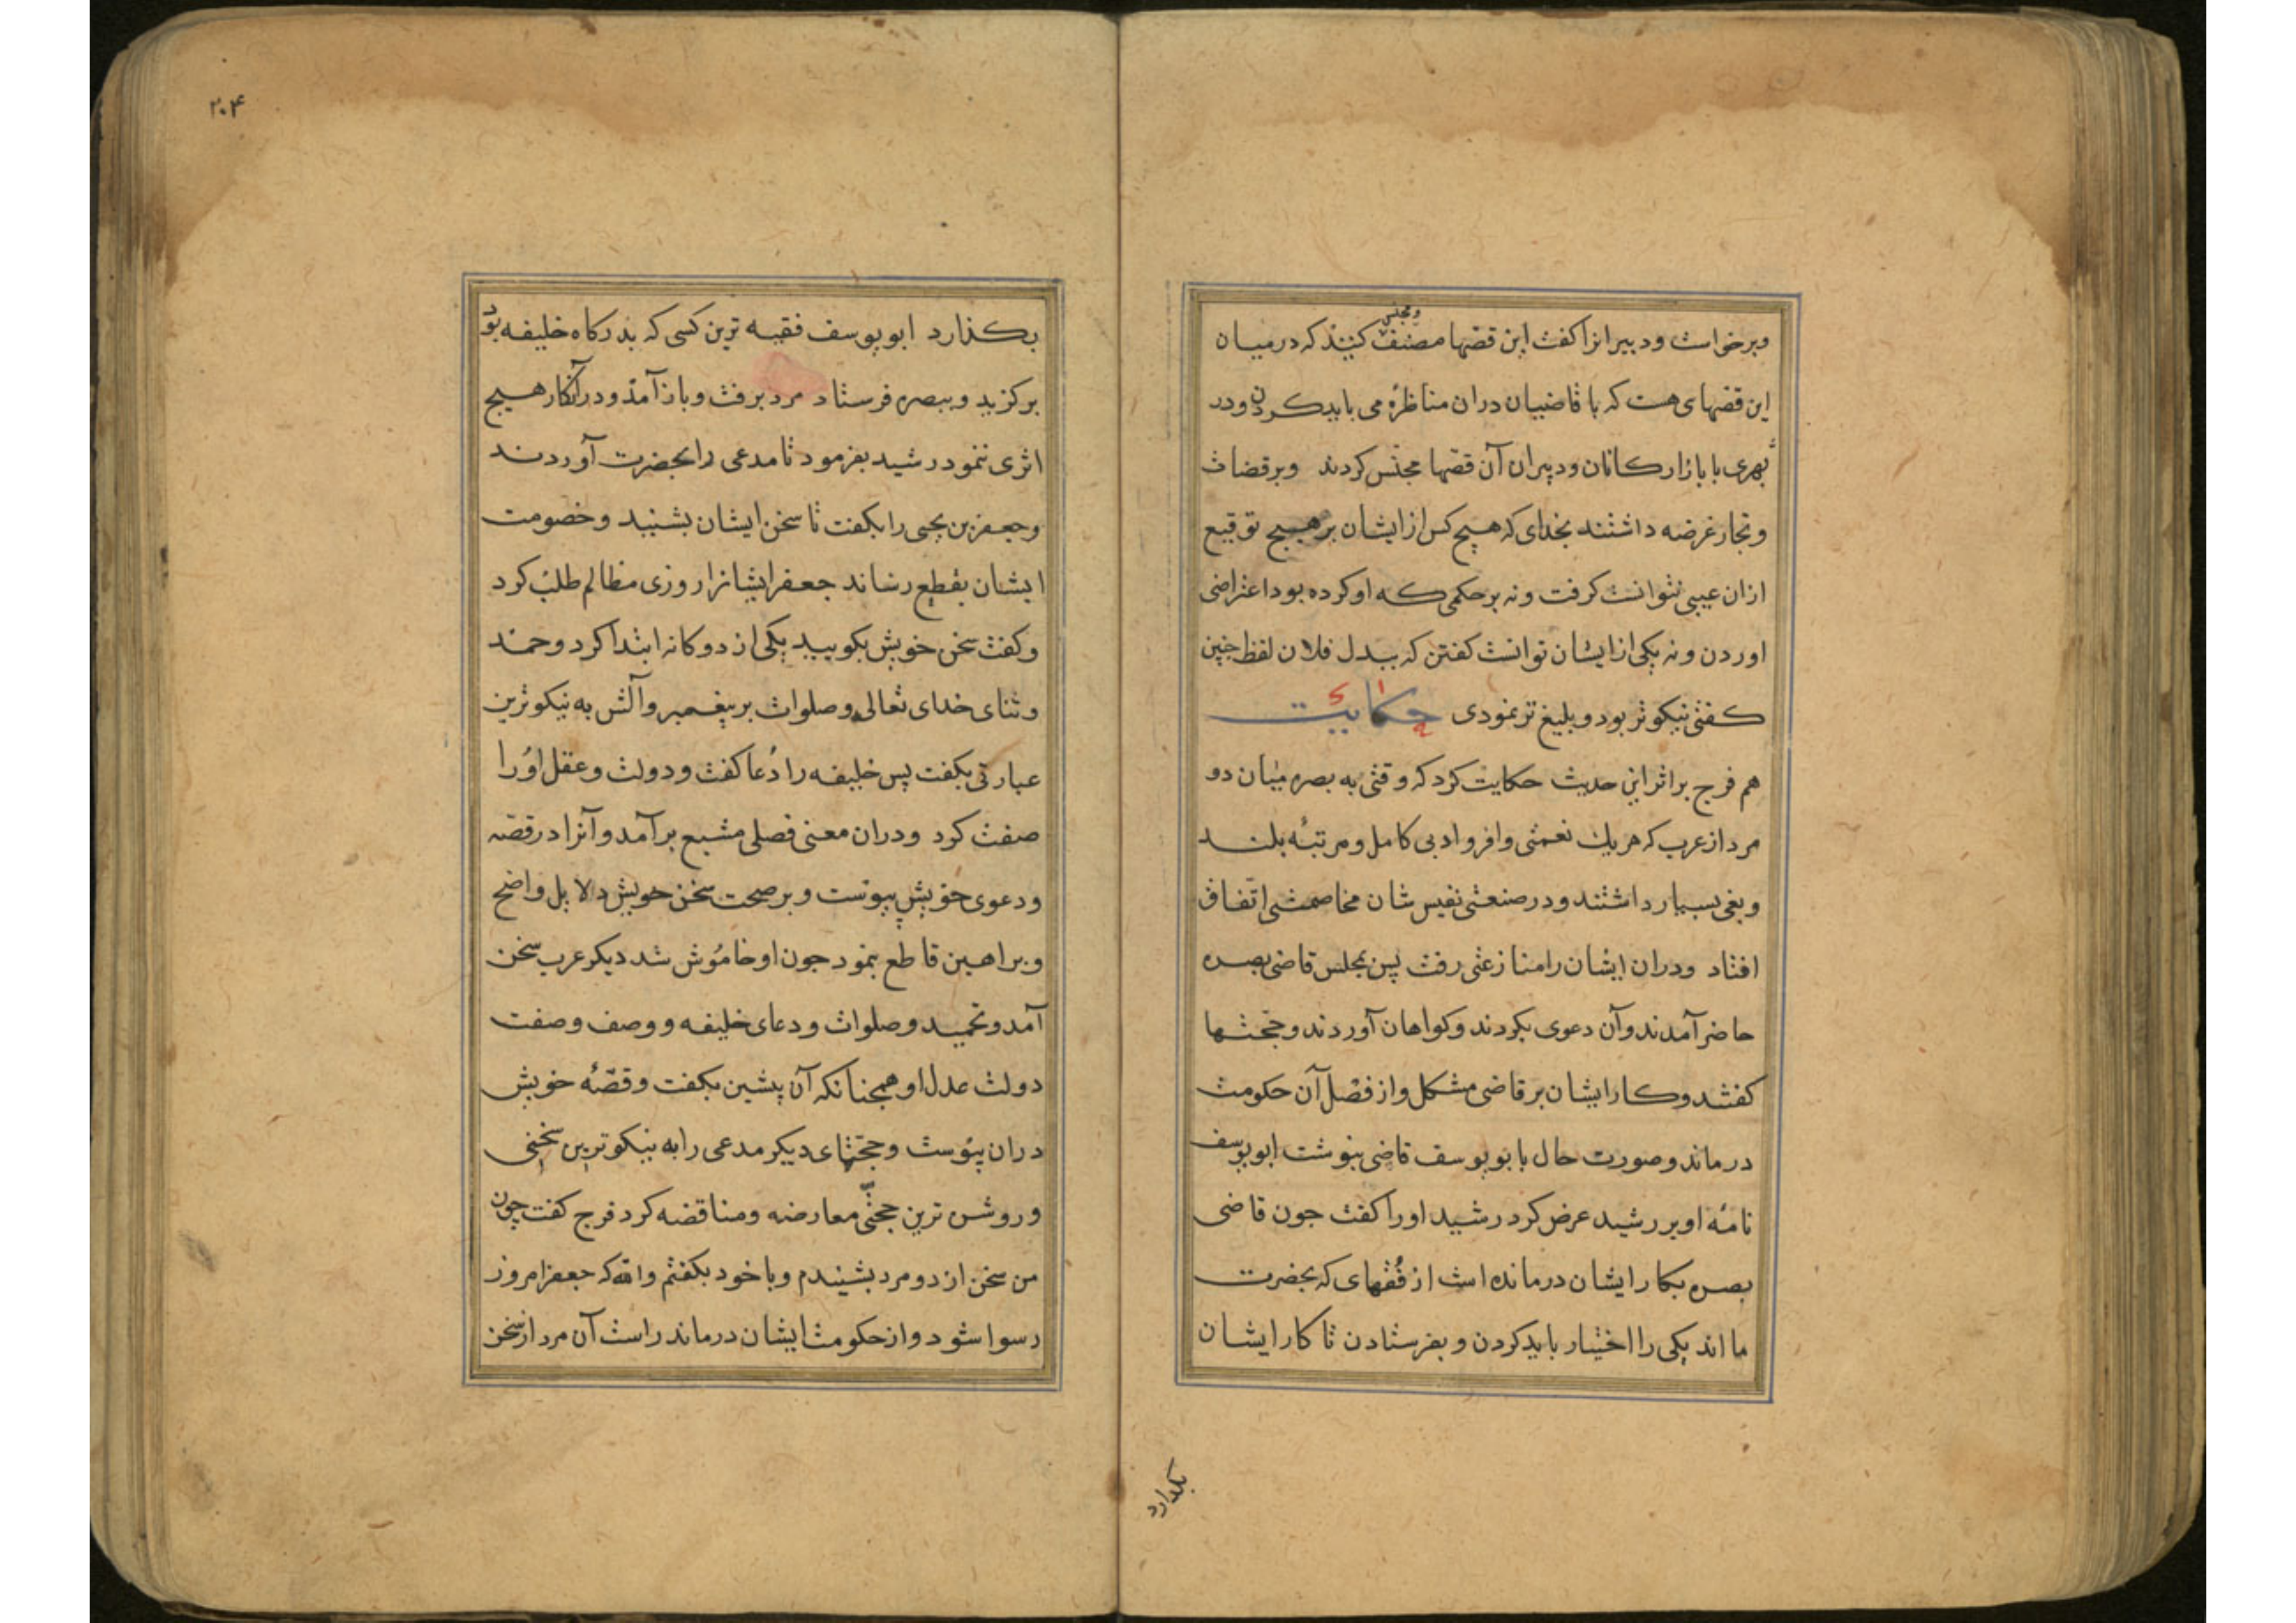 وبرخواست ودبیرانرا کفت این قصّها مصنف ومجلس کنید که درمیان
این قصّهای هست که با قاضیان دران مناظرهٔ می باید کردن ودر
بهری با بازارکانان ودبیران آن قصّها مجنّس کردند وبرقضات
وتجار عرضه داشتند بخدای که هیچ کس از ایشان بر هیچ توقیع
ازان عیبی نتوانست کرفت ونه برحکمی که او کرده بود اعتراضی
اوردن ونه یکی از ایشان توانست کفتن که ببدل فلان لفظ چنین
کفتی نیکوتر بود وبلیغ تر نمودی حکایت
هم فرج براثر این حدیث حکایت کرد که وقتی به بصره میان دو
مرد از عرب که هر یك نعمتی وافر وادبی کامل ومرتبهٔ بلند
وبغی بسیار داشتند ودر صنعتی نفیس شان مخاصمتی اتّفاق
افتاد ودران ایشان را منازعتی رفت پس بمجلس قاضی بصره
حاضر آمدند وآن دعوی بکردند وکواهان آوردند وحجّتها
کفتند وکار ایشان بر قاضی مشکل واز فصل آن حکومت
درماند وصورت حال بابو یوسف قاضی بنوشت ابو یوسف
نامهٔ او بر رشید عرض کرد رشید اورا کفت جون قاضی
بصره بکار ایشان درمانده است از فُقهای که بحضرت
ما اند یکی را اختیار باید کردن وبفرستادن تا کار ایشان
بکذارد
۲۰۴
بکذارد ابو یوسف فقیه ترین کسی که بدرکاه خلیفه بود
برکزید وببصره فرستاد مرد برفت وباز آمد ودر آنکار هیچ
اثری ننمود رشید بفرمود تا مدعی را بحضرت آوردند
وجعفر بن یحیی را بکفت تا سخن ایشان بشنید وخصومت
ایشان بقطع رساند جعفر ایشانرا روزی مظالم طلب کرد
وکفت سخن خویش بکویید یکی از دوکانه ابتدا کرد وحمد
وثنای خدای تعالی وصلوات بر پیغمبر وآلش به نیکوترین
عبارتی بکفت پس خلیفه را دُعا کفت ودولت وعقل اوُرا
صفت کرد ودران معنی فصلی مشبع برآمد وآنرا درقصّه
ودعوی خویش پیوست وبر صحت سخن خویش دلایل واضح
وبراهین قاطع بنمود جون او خاموُش شد دیکر عرب سخن
آمد وتحمید وصلوات ودعای خلیفه ووصف وصفت
دولت عدل او همچنانکه آن پیشین بکفت وقصّهٔ خویش
دران پیوُست وحجّتهای دیکر مدعی را به نیکوترین سخنی
وروشن ترین حجّتی معارضه ومناقضه کرد فرج کفت چون
من سخن از دو مرد بشنیدم وبا خود بکفتم والله که جعفر امروز
رسوا شود واز حکومت ایشان درماند راست آن مرد از سخن